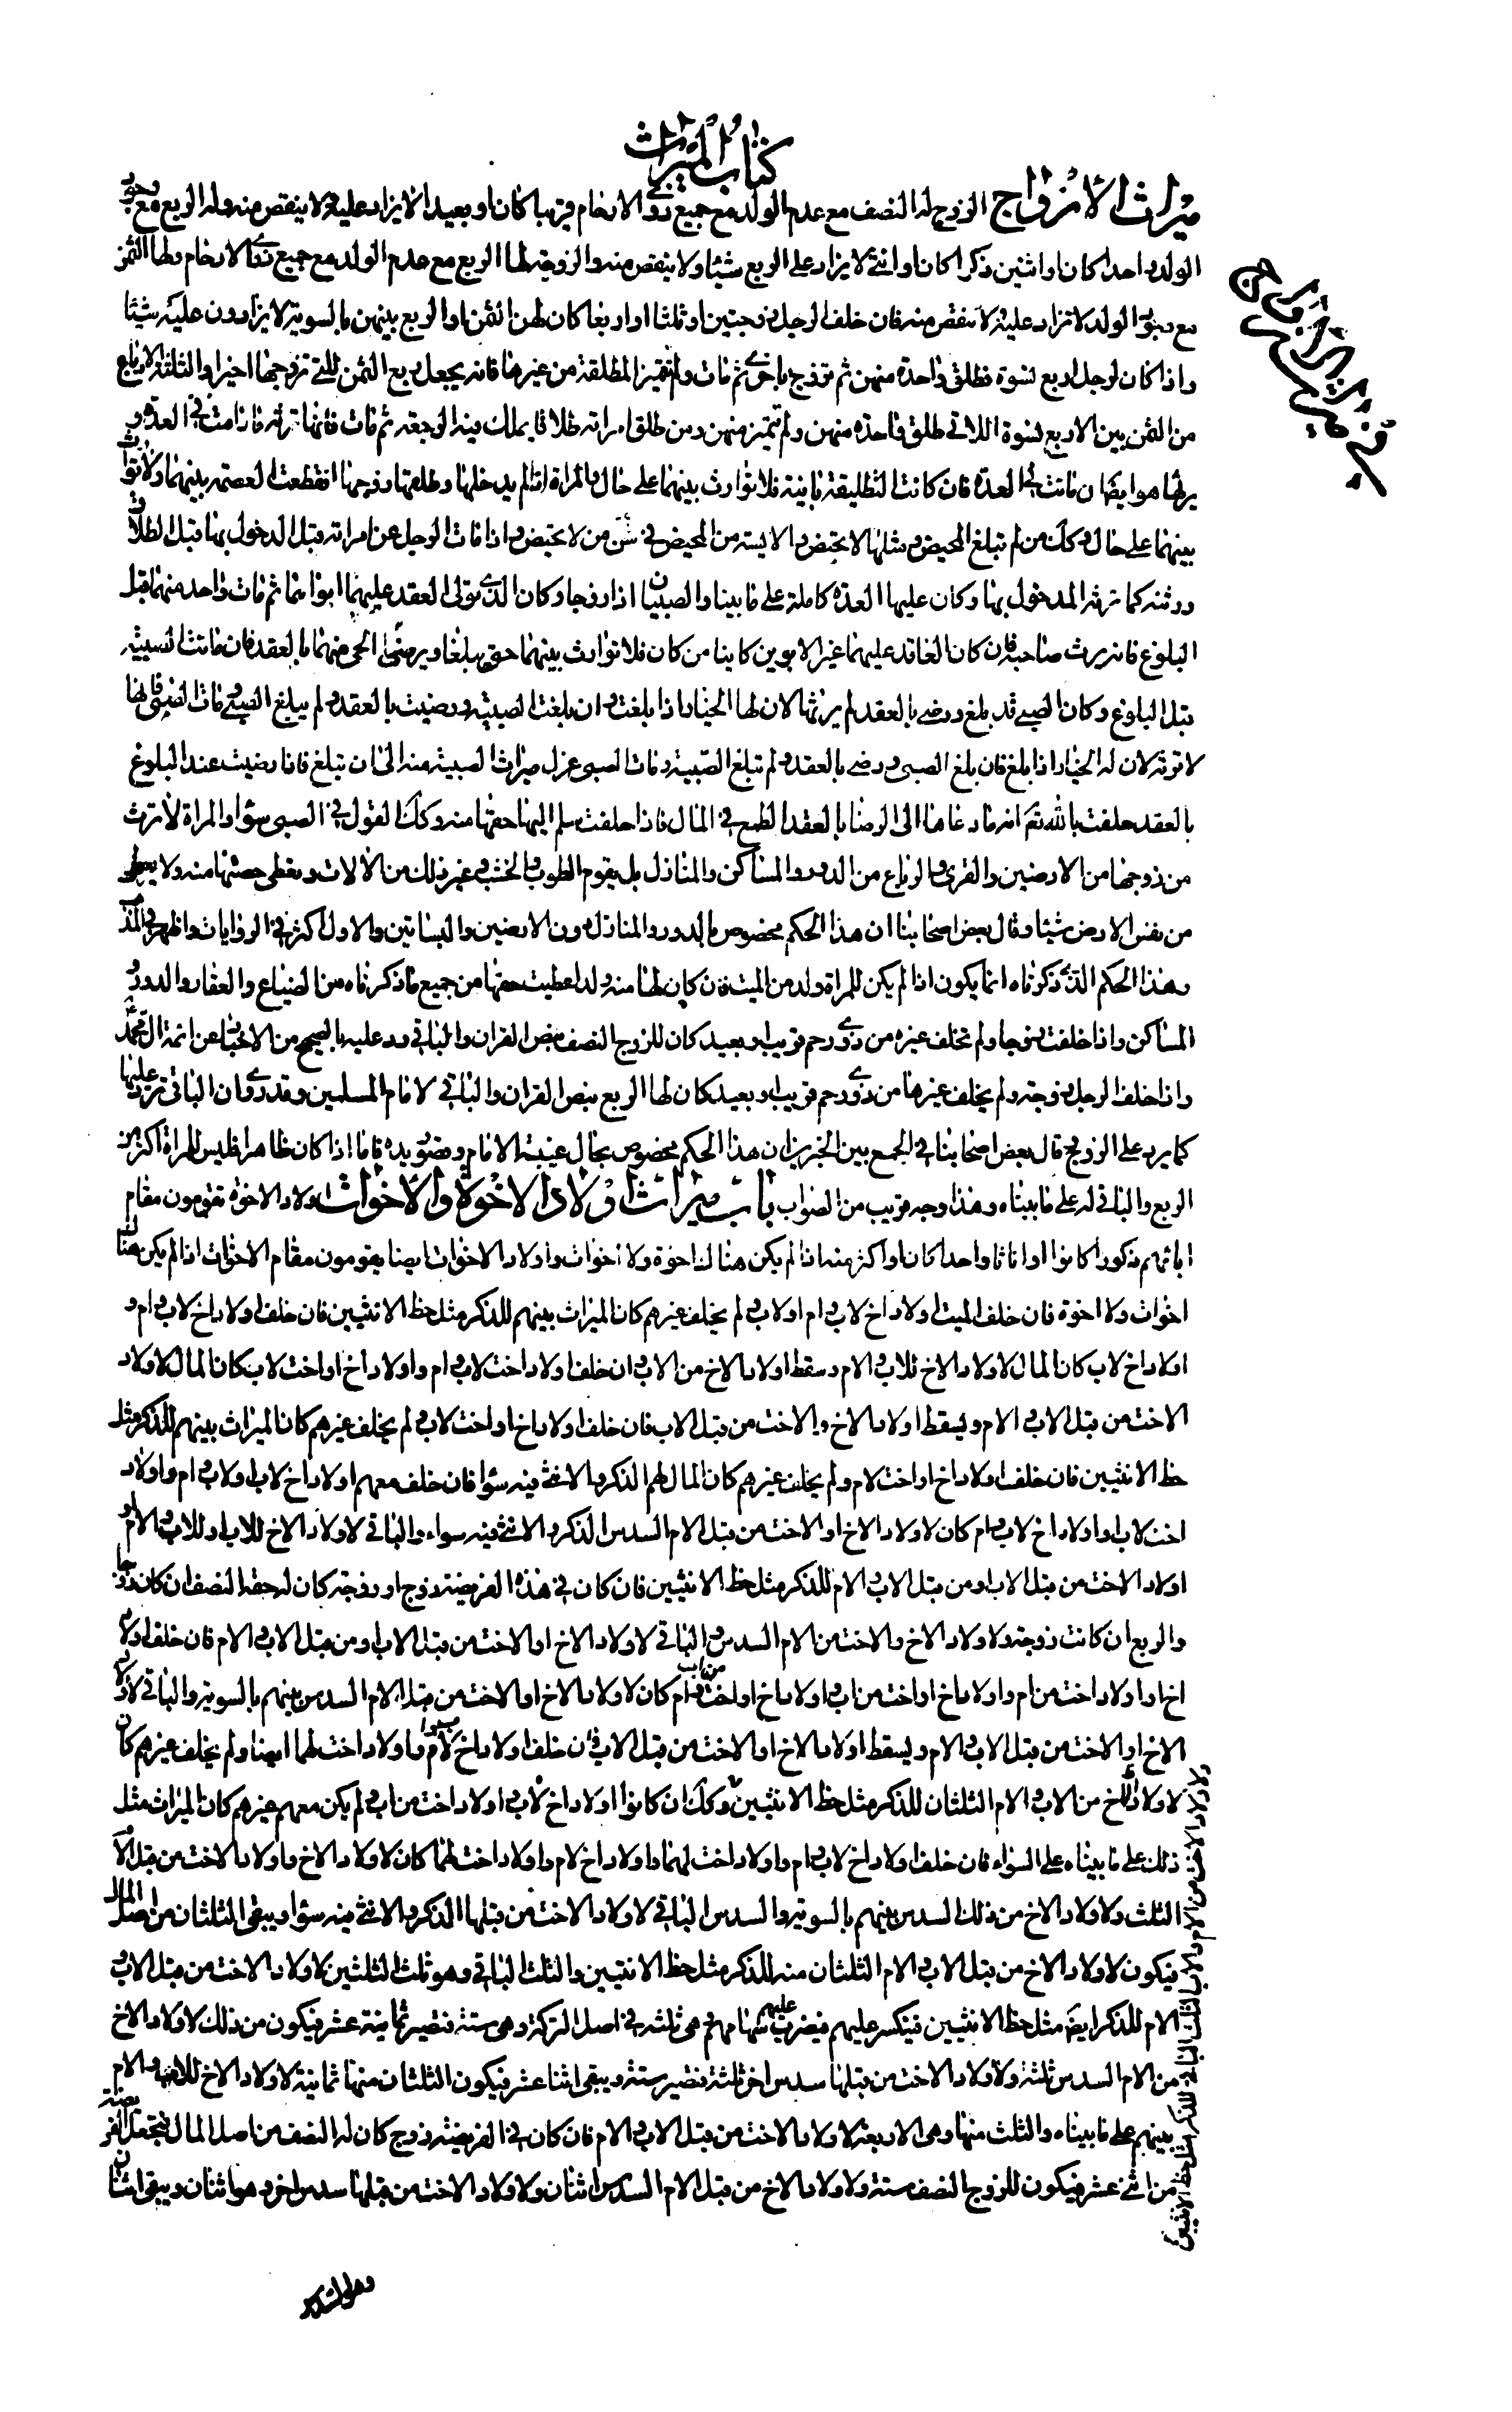 كتاب الميراث
ميراث الازواج الزوج له النصف مع عدم الولد مع جميع ذوى الارحام قريبا كان او بعيدا لا يزاد عليه ولا ينقص منه وله الربع مع وجود
الولد واحدا كان او اثنين ذكرا كان او انثى لا يزاد على الربع شيئا ولا ينقص منه والزوجة لها الربع مع عدم الولد مع جميع ذوى الارحام ولها الثمن
مع وجود الولد لا تزاد عليه ولا تنقص منه فان خلف الرجل زوجتين او ثلثا او اربعا كان لهن الثمن او الربع بينهن بالسوية لا يزادون عليه شيئا
واذا كان لرجل اربع نسوة فطلق واحدة منهن ثم تزوج باخرى ثم مات ولم تتميز المطلقة من غيرها فانه يجعل ربع الثمن للتى تزوجها اخيرا والثلثة الارباع
من الثمن بين الاربع نسوة اللاتى طلق واحدة منهن ولم تتميز منهن ومن طلق امراته طلاقا يملك فيه الرجعة ثم مات فانها ترثه ما دامت فى العدة و
يرثها هو ايضا ان ماتت فى العدة فان كانت التطليقة باينة فلا توارث بينهما على حال والمراة اذا لم يدخل بها وطلقها زوجها انقطعت العصمة بينهما ولا توارث
بينهما على حال وكك من لم تبلغ المحيض ومثلها لا تحيض والايسة من المحيض فى سن من لا تحيض واذا مات الرجل عن امراته قبل الدخول بها قبل الطلاق
ورثته كما ترثه المدخول بها وكان عليها العدة كاملة على ما بيناه والصبيان اذا زوجا وكان الذى تولى العقد عليهما ابواهما ثم مات واحد منهما قبل
البلوغ فانه يرث صاحبه فان كان العاقد عليهما غير الابوين كاينا من كان فلا توارث بينهما حتى يبلغا ويرضى الحى منهما بالعقد فان ماتت الصبية
قبل البلوغ وكان الصبى قد بلغ ورضى بالعقد لم يرثها لان لها الخيار اذا بلغت وان بلغت الصبية ورضيت بالعقد ولم يبلغ الصبى ومات الصبى فانها
لا ترثه لان له الخيار اذا بلغ فان بلغ الصبى ورضى بالعقد ولم تبلغ الصبية ومات الصبى عزل ميراث الصبية منه الى ان تبلغ فاذا رضيت عند البلوغ
بالعقد حلفت بالله تع انه ما دعاها الى الرضا بالعقد الطمع فى المال فاذا حلفت سلم اليها حقها منه وكك القول فى الصبى سواء والمراة لا ترث
من زوجها من الارضين والقرى والرباع من الدور والمساكن والمنازل بل يقوم الطوب والخشب وغير ذلك من الآلات وتعطى حصتها منه ولا يعطى
من نفس الارض شيئا وقال بعض اصحابنا ان هذا الحكم مخصوص بالدور والمنازل دون الارضين والبساتين والاول اكثر فى الروايات واظهر فى المذهب
وهذا الحكم الذى ذكرناه انما يكون اذا لم يكن للمراة ولد من الميت فان كان لها منه ولد اعطيت حقها من جميع ما ذكرناه من الضياع والعقار والدور و
المساكن واذا خلفت زوجا ولم تخلف غيره من ذى رحم قريب او بعيد كان للزوج النصف بنص القران والباقى رد عليه بالصحيح من الاخبار عن ائمة ال محمد
واذا خلف الرجل زوجة ولم يخلف غيرها من ذى رحم قريب او بعيد كان لها الربع بنص القران والباقى لامام المسلمين وقد روى ان الباقى ترد عليها
كما يرد على الزوج قال بعض اصحابنا فى الجمع بين الخبرين ان هذا الحكم مخصوص بحال غيبة الامام وقصور يده فاما اذا كان ظاهرا فليس للمراة اكثر من
الربع والباقى له على ما بيناه وهذا وجه قريب من الصواب باب ميراث اولاد الاخوة والاخوات اولاد الاخوة تقومون مقام
ابائهم ذكورا كانوا او اناثا واحدا كان او اكثر منه اذا لم يكن هناك اخوة ولا اخوات واولاد الاخوات ايضا يقومون مقام الاخوات اذا لم يكن هناك
اخوات ولا اخوة فان خلف الميت اولاد اخ لاب وام او لاب ولم يخلف غيرهم كان الميراث بينهم للذكر مثل حظ الانثيين فان خلف اولاد اخ لاب وام و
اولاد اخ لاب كان المال لاولاد الاخ للاب والام وسقط اولاد الاخ من الاب وان خلف اولاد اخت لاب وام واولاد اخ او اخت لاب كان المال لاولاد
الاخت من قبل الاب والام ويسقط اولاد الاخ والاخت من قبل الاب فان خلف اولاد اخ او اخت لاب ولم يخلف غيرهم كان الميراث بينهم للذكر مثل
حظ الانثيين فان خلف اولاد اخ او اخت لام ولم يخلف غيرهم كان المال لهم الذكر والانثى فيه سواء فان خلف معهم اولاد اخ لاب او لاب وام واولاد
اخت لاب او اولاد اخ لاب وام كان لاولاد الاخ او الاخت من قبل الام السدس الذكر والانثى فيه سواء والباقى لاولاد الاخ للاب او للاب والام و
اولاد الاخت من قبل الاب او من قبل الاب والام للذكر مثل حظ الانثيين فان كان فى هذه الفريضة زوج او زوجة كان له حقه النصف ان كان زوجا
والربع ان كانت زوجة ولاولاد الاخ والاخت من الام السدس والباقى لاولاد الاخ او الاخت من قبل الاب او من قبل الاب والام فان خلف اولاد
اخ او اولاد اخت من ام واولاد اخ او اخت من اب واولاد اخ او اخت من اب وام كان لاولاد الاخ او الاخت من قبل الام السدس بينهم بالسوية والباقى لاولاد
الاخ او الاخت من قبل الاب والام ويسقط اولاد الاخ او الاخت من قبل الاب فان خلف اولاد اخ لام واولاد اخت لهما ايضا ولم يخلف غيرهم كان
لاولاد الاخ من الاب والام الثلثان للذكر مثل حظ الانثيين وكك ان كانوا اولاد اخ لاب او اولاد اخت من اب ولم يكن معهم غيرهم كان الميراث مثل
ذلك على ما بيناه على السواء فان خلف اولاد اخ لاب وام واولاد اخت لهما واولاد اخ لام واولاد اخت لها كان لاولاد الاخ واولاد الاخت من قبل الام
الثلث ولاولاد الاخ من ذلك السدس بينهم بالسوية والسدس الباقى لاولاد الاخت من قبلها الذكر والانثى فيه سواء ويبقى الثلثان من اصل المال
فيكون لاولاد الاخ من قبل الاب والام الثلثان منه للذكر مثل حظ الانثيين والثلث الباقى وهو ثلث الثلثين لاولاد الاخت من قبل الاب و
الام للذكر ايض مثل حظ الانثيين فينكسر عليهم فيضرب سهامهم وهى ثلثة فى اصل التركة وهى ستة فتصير ثمانية عشر فيكون من ذلك لاولاد الاخ
من الام السدس ثلثة ولاولاد الاخت من قبلها سدس اخر ثلثة فتصير ستة ويبقى اثنا عشر فيكون الثلثان منها ثمانية لاولاد الاخ للاب والام
بينهم على ما بيناه والثلث منها وهى الاربعة لاولاد الاخت من قبل الاب والام فان كان فى الفريضة زوج كان له النصف من اصل المال فتجعل الفريضة
من اثنى عشر فيكون للزوج النصف ستة ولاولاد الاخ من قبل الام السدس اثنان ولاولاد الاخت من قبلها سدس اخر وهو اثنان ويبقى اثنان
ولاولاد الاخت من الام والاب الثلث الباقى للذكر مثل حظ الانثيين